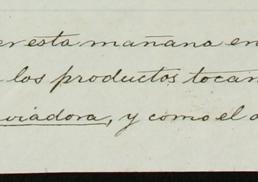 er esta mañana en
los productos tocan
viadora, y como el